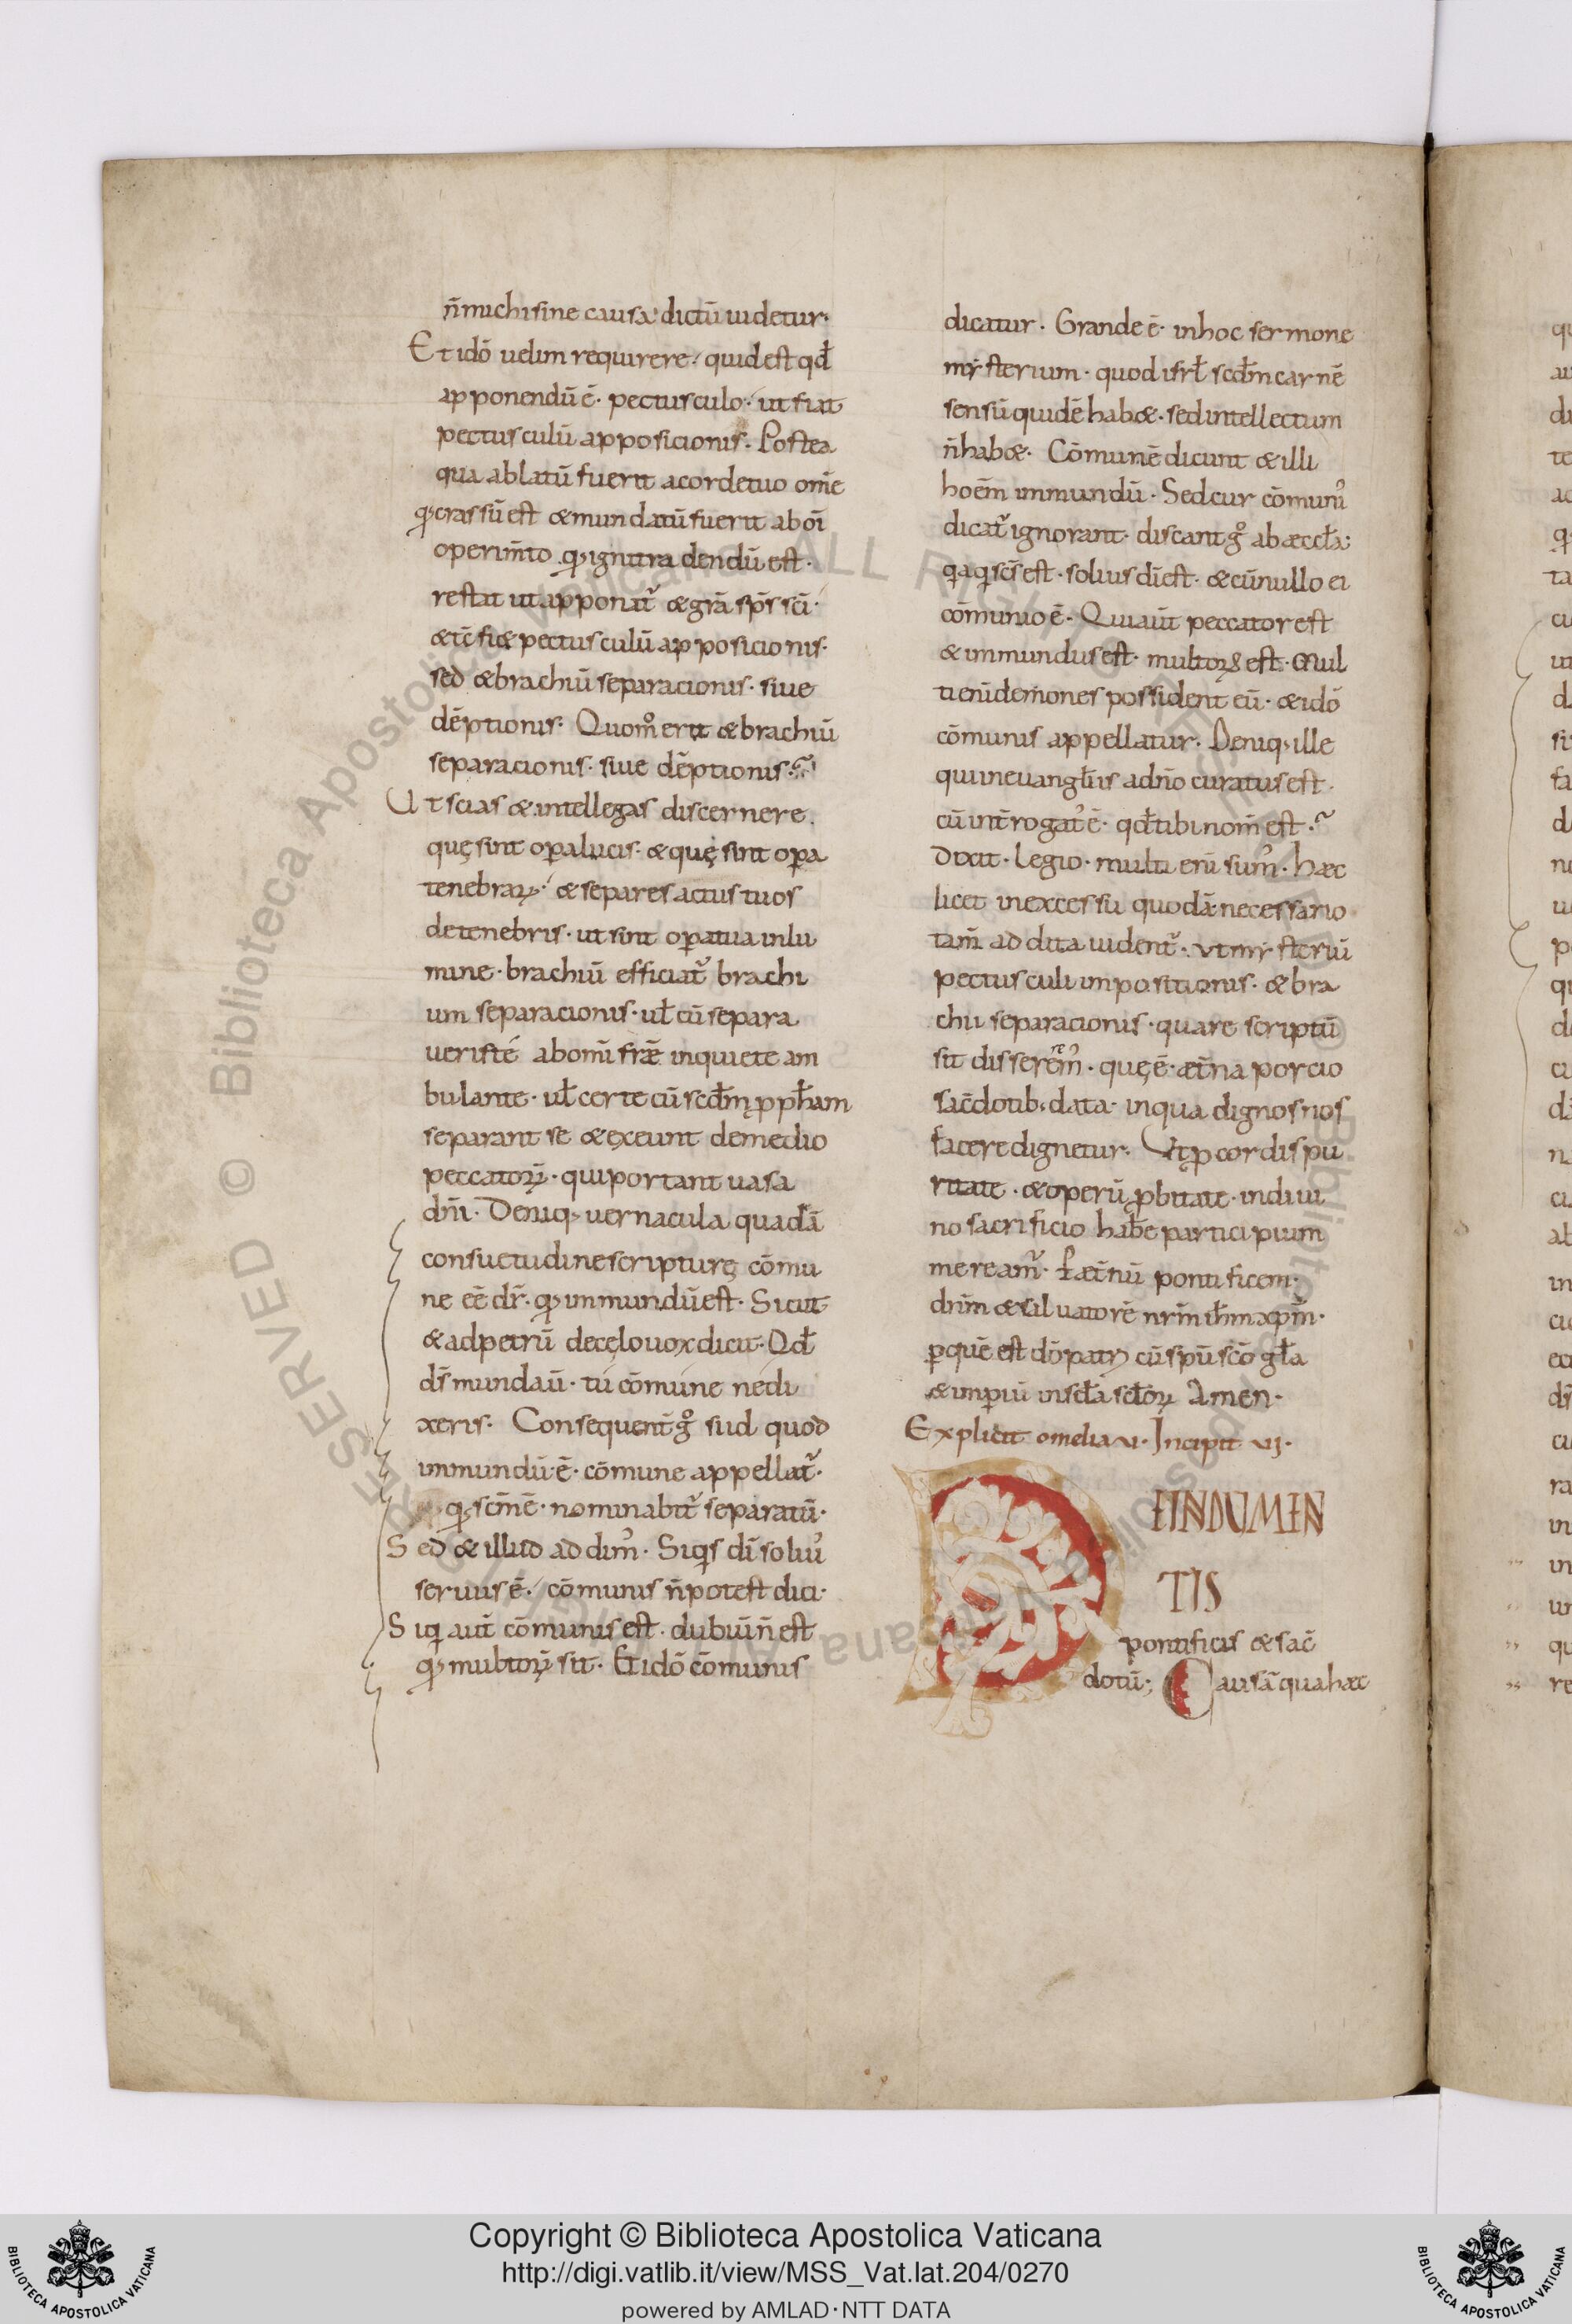 n̄ michi sine causa dictū uidetur·
Et idō uelim requirere· quid est qđ
apponendū ē· pectusculo· ut fiat
pectusculū apposicionis· Postea
qua ablatū fuerit a corde tuo om̄e
qꝫ crassū est & mundatū fuerit ab oī
operim̄to qꝫ igni tradendū est·
restat ut apponat̃ & gr̄a sp̄s sc̄i·
& tc̄ fi& pectusculū apposicionis·
sed & brachiū separacionis· siue
dēptionis· Quom̊ erit & brachiū
separacionis· siue dēptionis·
Ut scias & intellegas discernere·
quę sint op̄a lucis· & quę sint op̄a
tenebraꝝ· & separes actus tuos
de tenebris· ut sint op̄a tua in lu
mine· brachiū efficiat̃ brachi
um separacionis· ul̄ cū separa
ueris té ab om̄i fr̄æ inquiete am
bulante· ul̄ certe cū scđm ꝓph̄am
separant se & exeunt de medio
peccatoꝝ· qui portant uasa
dn̄i· Deniqꝫ uernacula quadā
consuetudine scripturę cōmu
ne eē dr̄· qꝫ immundū est· Sicut
& ad petrū de cęlo uox dicit· Qđ
d̄s mundau̅· tú cōmúne né di
xeris· Consequent̄ g̊ sud quod
immundū ē· cōmune appellat̃·
qꝫ sc̄m ē· nominabit̃ separatū·
Sed & illud addim᾿· Siqꝭs dī soliu᾿
seruus ē· cōmunis n̄ potest dici·
Siqꝭ aut̄ cōmunis est· dubiū n̄ est
qꝫ multoꝝ sit· Et idō cōmunis
dicatur· Grande ē· in hoc sermone
mysterium· quod isrł scđm carnē
sensū quidē hab&· sed intellectum
n̄ hab&· Cōmunē dicunt & illi
hoēm immundū· Sed cur cōmuni᾿
dicat̃ ignorant· discant g̊ ab æccła·
qꝭa qꝭ sc̄s est· solius dī est· & cū nullo ei
cōmunio ē· Qui aut̄ peccator est
& immundus est· multoꝝ est· Mul
ti enī demones possident eū· & idō
cōmunis appellatur· Deniqꝫ ille
qui in euangłiis a dn̄o curatus est·
cū int̄rogat᾿ ē· qđ tibi nom̄ est·
Dixit· Legio· multi eni sum᾿· hæc
licet in excessu quodā necessario
tam̄ addita uident̃· ut mysteriū
pectusculi impositionis· & bra
chii separacionis· quare scriptū
sit disserem᾿· quę ē· æt̄na porcio
sac̄dotibꝫ data· in qua dignos nos
facere dignetur· Ut ꝓ cordis pu
ritate· & operū ꝓbitate· in diui
no sacrificio hab̄e participium
meream̃· P̱ æt̄nū pontificem·
dn̄m & saluatorē nrm̄ ih̄m xp̄m·
ꝑ quē est dō patꝭ cū sp̄u sc̄o gła
& imꝑiū in scła scłoꝝ Amen·
Explicit omelia vi· Incipit vij·
DE INDUMEN
TIS
pontificis & sac̄
dotū; Causā qua hæc
Copyright © Biblioteca Apostolica Vaticana
http://digi.vatlib.it/view/MSS_Vat.lat.204/0270
powered by AMLAD·NTT DATA